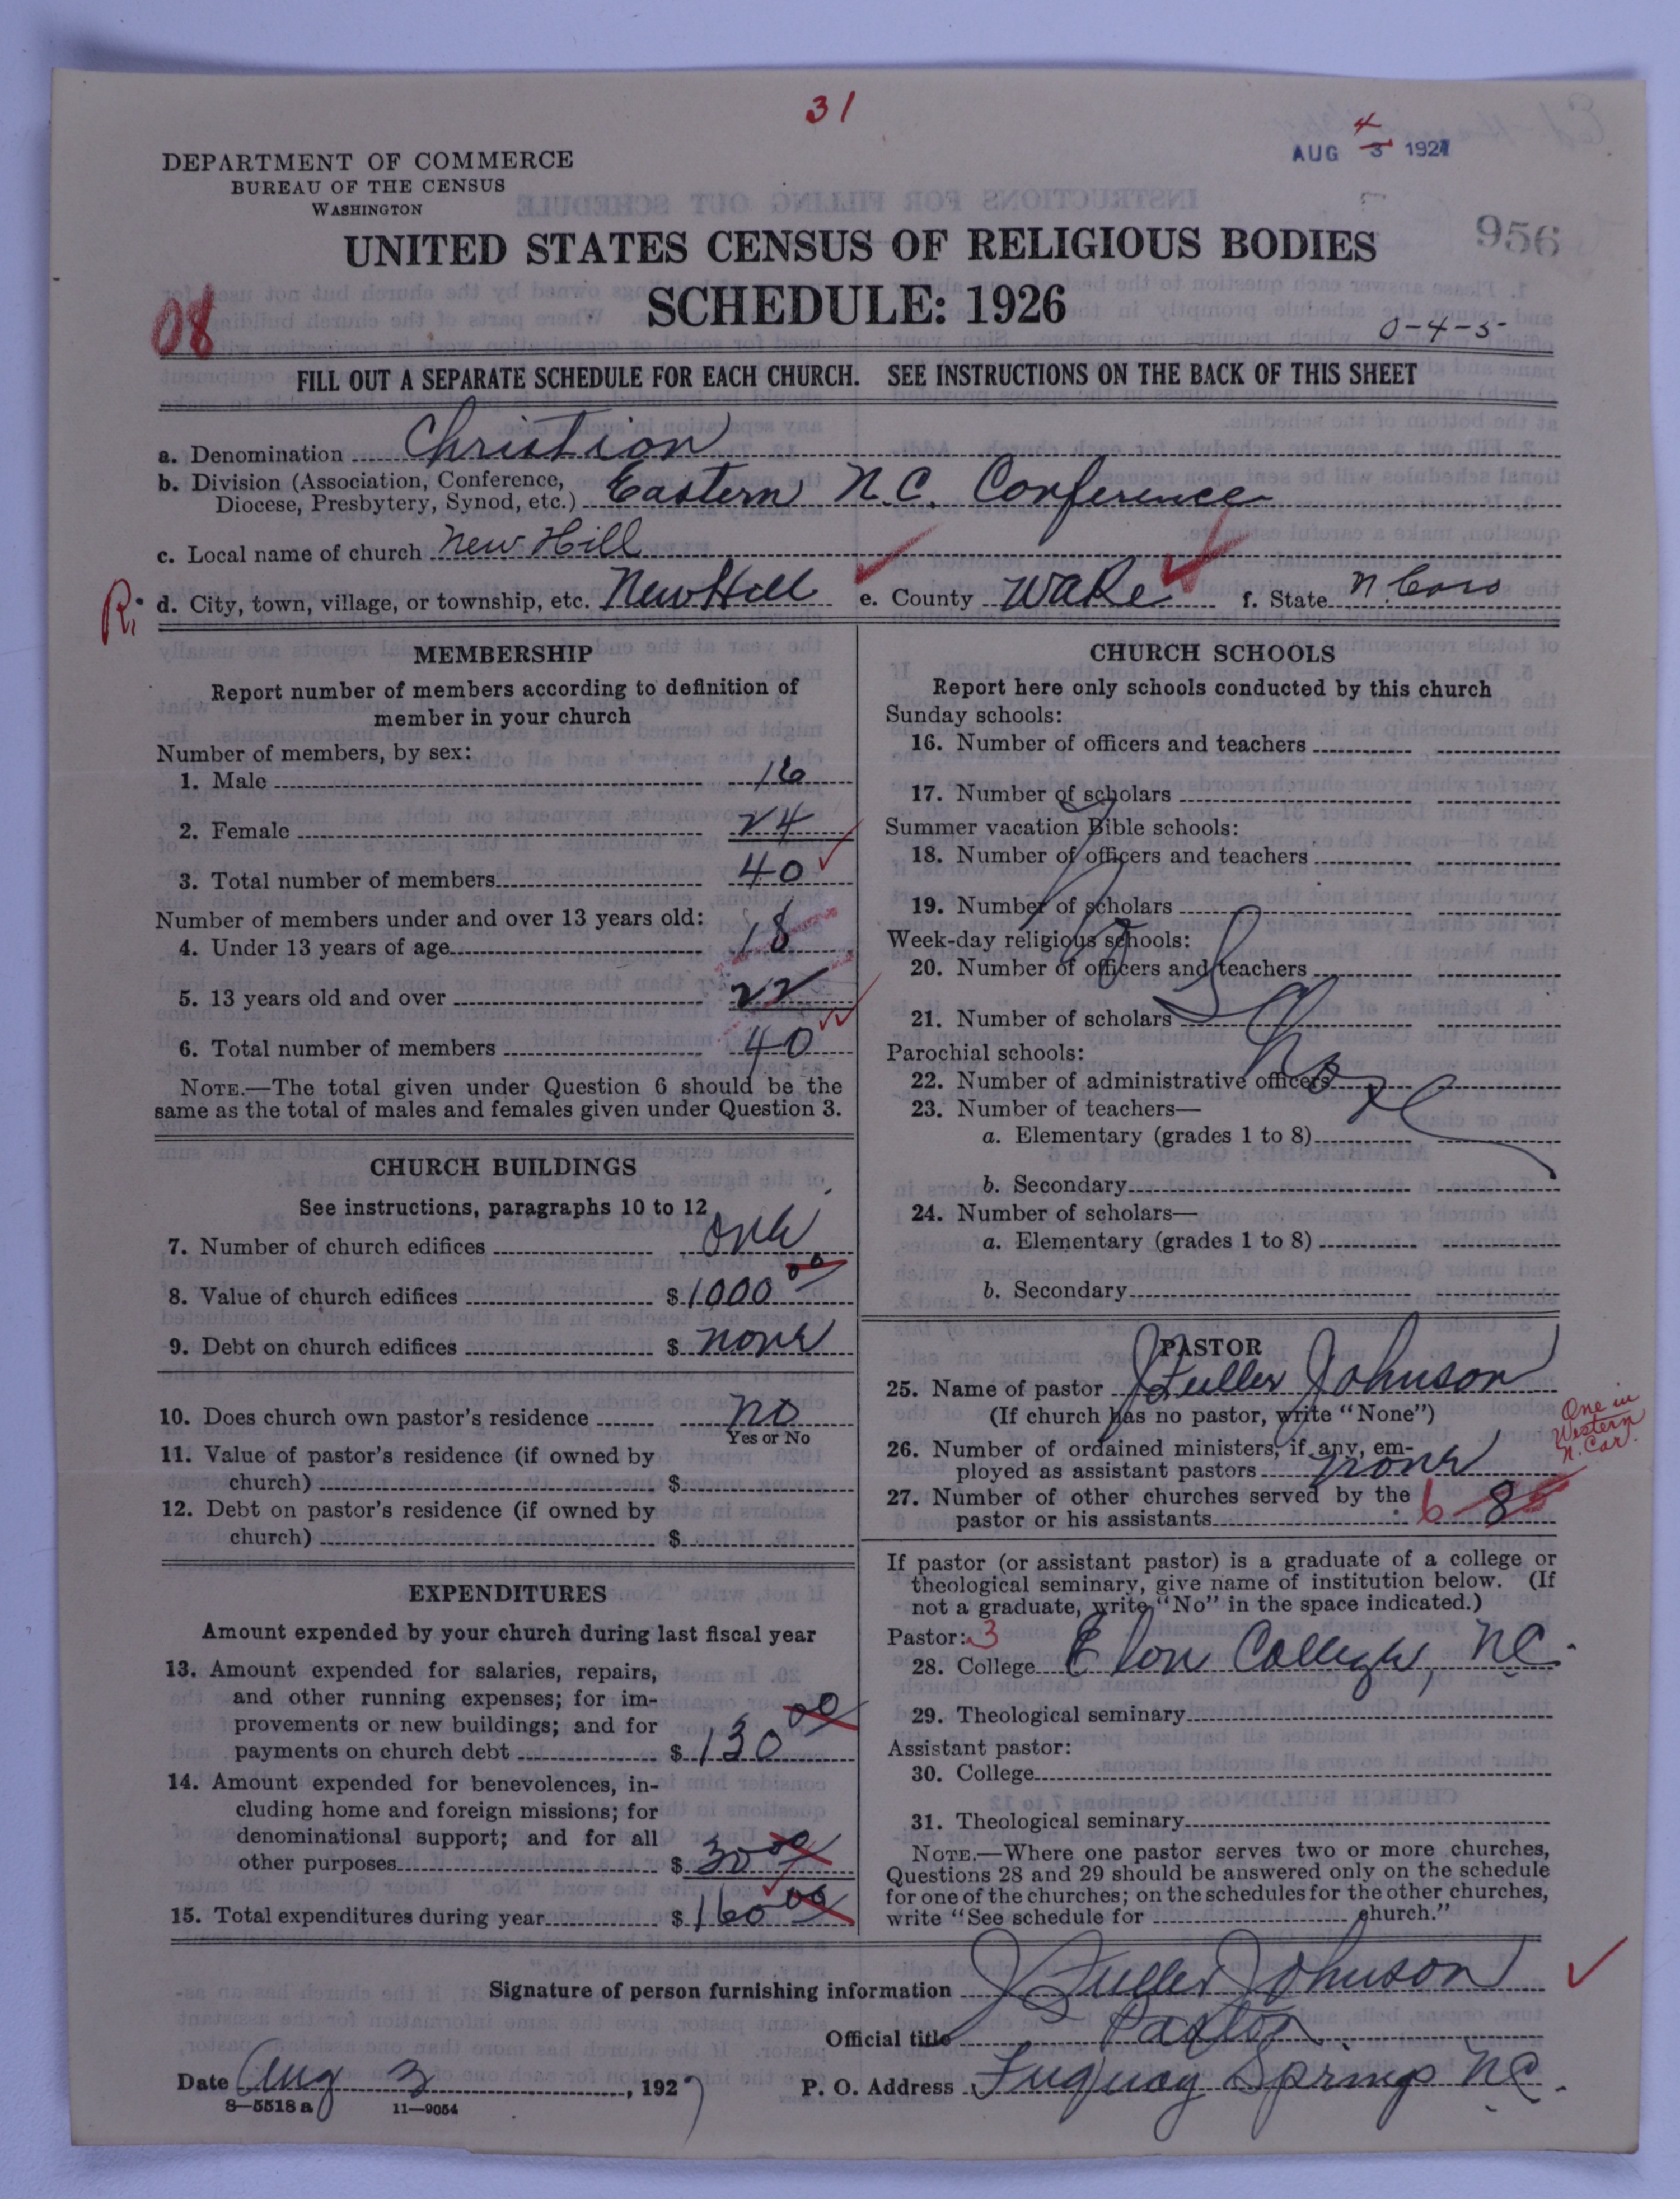 31
AUG 3 4 1927
DEPARTMENT OF COMMERCE
BUREAU OF THE CENSUS
WASHINGTON
956
UNITED STATES CENSUS OF RELIGIOUS BODIES
SCHEDULE: 1926
08
0-4-5
FILL OUT A SEPARATE SCHEDULE FOR EACH CHURCH. SEE INSTRUCTIONS ON THE BACK OF THIS SHEET
a. Denomination Christion
b. Division (Association, Conference,
Diocese, Presbytery, Synod, etc.) Eastern N.C. Conference
c. Local name of church New Hill
R. d. City, town, village, or township, etc. New Hill e. County Wake f. State N Caro
MEMBERSHIP
Report number of members according to definition of
member in your church
Number of members, by sex:
1. Male 16
2. Female 24
3. Total number of members 40
Number of members under and over 13 years old:
4. Under 13 years of age 18
5. 13 years old and over 22
6. Total number of members 40
NOTE.—The total given under Question 6 should be the
same as the total of males and females given under Question 3.
CHURCH BUILDINGS
See instructions, paragraphs 10 to 12
7. Number of church edifices one
8. Value of church edifices $ 1000 00
9. Debt on church edifices $ none
10. Does church own pastor's residence no
Yes or No
11. Value of pastor's residence (if owned by
church) $
12. Debt on pastor's residence (if owned by
church) $
EXPENDITURES
Amount expended by your church during last fiscal year
13. Amount expended for salaries, repairs,
and other running expenses; for im-
provements or new buildings; and for
payments on church debt $ 130 00
14. Amount expended for benevolences, in-
cluding home and foreign missions; for
denominational support; and for all
other purposes $ 30 00
15. Total expenditures during year $ 160 00
CHURCH SCHOOLS
Report here only schools conducted by this church
Sunday schools:
16. Number of officers and teachers
17. Number of scholars
Summer vacation Bible schools:
18. Number of officers and teachers
19. Number of scholars
Week-day religious schools:
20. Number of officers and teachers
21. Number of scholars
Parochial schools:
22. Number of administrative officers
23. Number of teachers—
a. Elementary (grades 1 to 8)
b. Secondary
24. Number of scholars—
a. Elementary (grades 1 to 8)
b. Secondary
PASTOR
25. Name of pastor J Fuller Johnson
(If church has no pastor, write "None")
One in
Western
N. Car.
26. Number of ordained ministers, if any, em-
ployed as assistant pastors none
27. Number of other churches served by the
pastor or his assistants 6 8
If pastor (or assistant pastor) is a graduate of a college or
theological seminary, give name of institution below. (If
not a graduate, write "No" in the space indicated.)
Pastor: 3
28. College Elon College, NC.
29. Theological seminary
Assistant pastor:
30. College
31. Theological seminary
NOTE.—Where one pastor serves two or more churches,
Questions 28 and 29 should be answered only on the schedule
for one of the churches; on the schedules for the other churches,
write "See schedule for church."
Signature of person furnishing information J Fuller Johnson
Official title Pastor
Date Aug 3, 1927 P. O. Address Fuquay Springs NC.
8—5518 a 11—9054